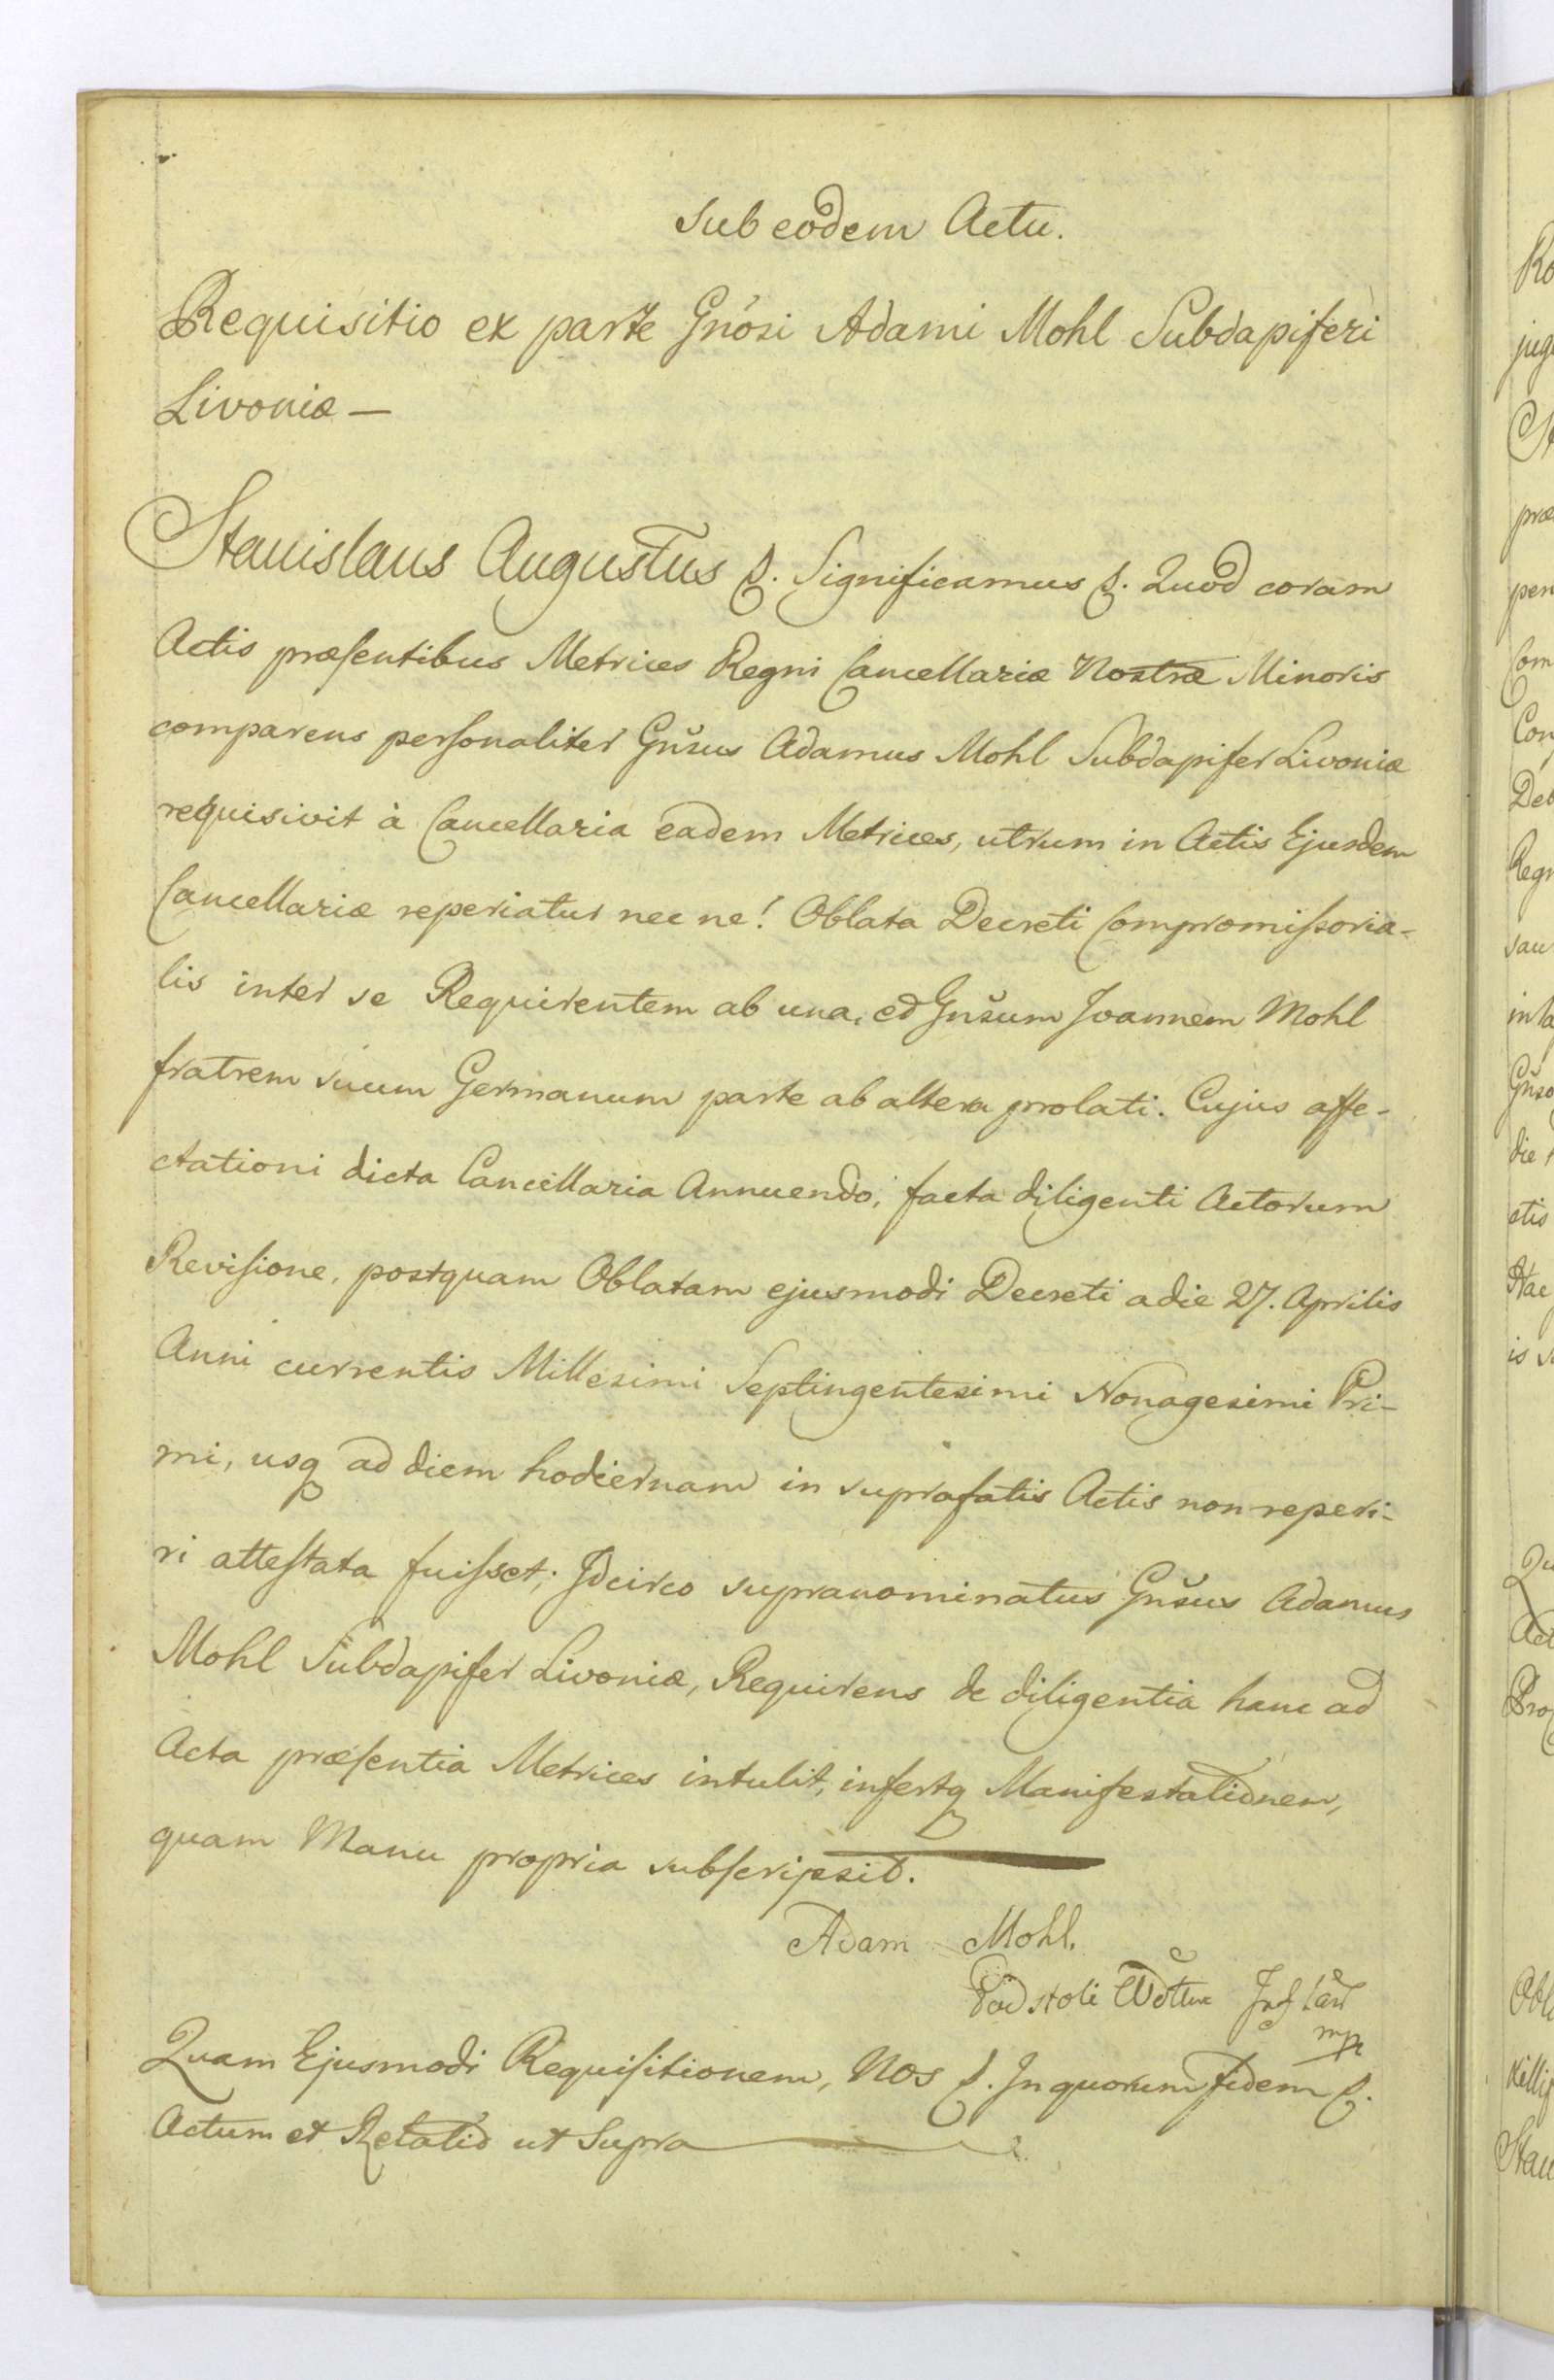 Sub eodem Actu.
Requisitio ex parte Gnosi Adami Mohl Subdapiferi
Livoniæ —
Stanislaus Augustus &. Significamus &. Quod coram
Actis præsentibus Metrices Regni Cancellariæ Nostræ Minoris
comparens personaliter Gnsus Adamus Mohl Subdapifer Livoniæ
requisivit à Cancellaria eadem Metrices, utrum in Actis Ejusdem
Cancellariæ reperiatur nec ne! Oblata Decreti Compromissoria-
lis inter se Requirentem ab una, et Gnsum Joannem Mohl
fratrem suum Germanum parte ab altera prolati. Cujus affe-
ctationi dicta Cancellaria Annuendo, facta diligenti Actorum
Revisione, postquam Oblatam ejusmodi Decreti a die 27. Aprilis
Anni currentis Millesimi Septingentesimi Nonagesimi Pri-
mi, usq ad diem hodiernam in suprafatis Actis non reperi-
ri attestata fuisset; Idcirco supranominatus Gnsus Adamus
Mohl Subdapifer Livoniæ, Requirens de diligentia hanc ad
Acta præsentia Metrices intulit, infertq Manifestationem,
quam Manu propria subscripsit.
Adam Mohl.
Podstoli
mp
Quam Ejusmodi Requisitionem, Nos &. In quorum fidem &.
Actum et Relatio ut Supra